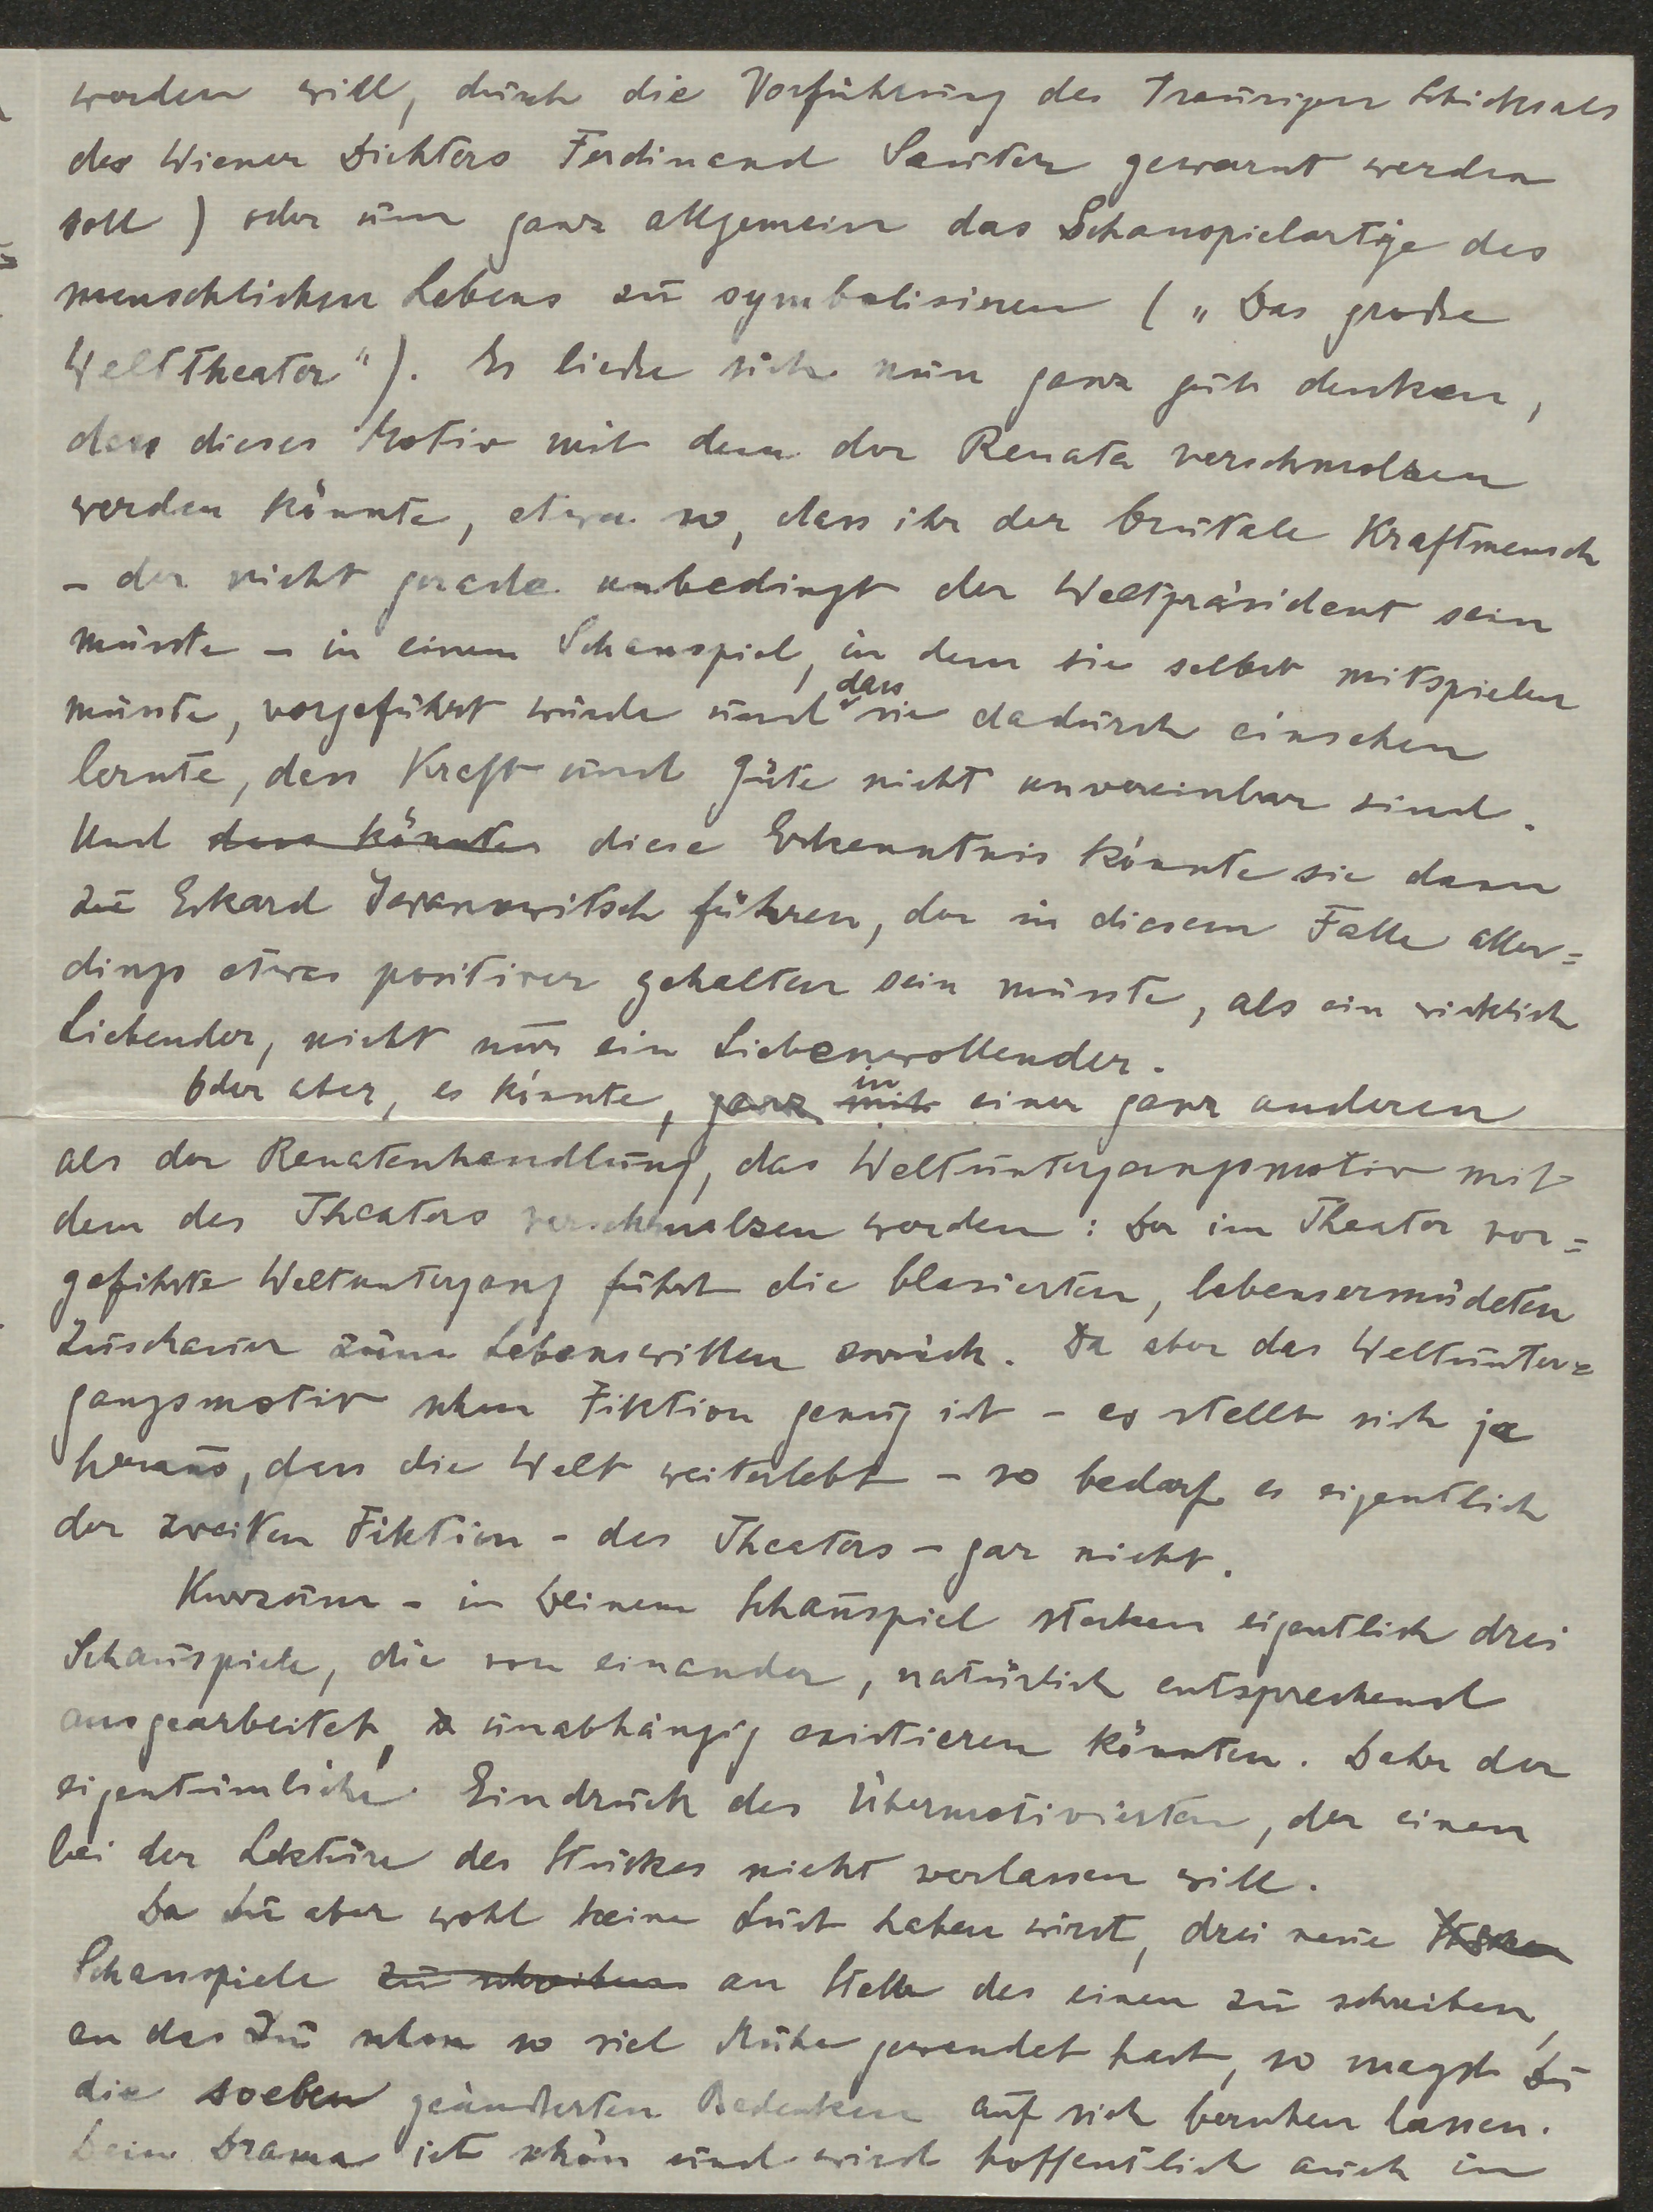 werden will, durch die Vorführung des traurigen Schicksals
des Wiener Dichters Ferdinand Sauter gewarnt werden
soll) oder um ganz allgemein das Schauspielartige des
menschlichen Lebens zu symbolisieren („Das große
Welttheater"). Es ließe sich nun ganz gut denken,
dass dieses Motiv mit dem der Renata verschmolzen
werden könnte, etwa so, dass ihr der brutale Kraftmensch
– der nicht gerade unbedingt der Weltpräsident sein
müsste – in einem Schauspiel, in dem sie selbst mitspielen
müsste, vorgeführt würde und dass sie dadurch einsehen
lernte, dass Kraft und Güte nicht unvereinbar sind.
Und dann könnte diese Erkenntnis könnte sie dann
zu Erkard Iwanowitsch führen, der in diesem Falle aller=
dings etwas positiver gehalten sein müsste, als ein wirklich
Liebender, nicht nur ein Liebenwollender.
Oder aber, es könnte, ganz mit in einer ganz anderen
als der Renatenhandlung, das Weltuntergangsmotiv mit
dem des Theaters verschmolzen werden: Der im Theater vor=
geführte Weltuntergang führt die blasierten, lebensermüdeten
Zuschauer zum Lebenswillen zurück. Da aber das Weltunter=
gangsmotiv schon Fiktion genug ist – es stellt sich ja
heraus, dass die Welt weiterlebt – so bedarf es eigentlich
der zweiten Fiktion – des Theaters – gar nicht.
Kurzum – in Deinem Schauspiel stecken eigentlich drei
Schauspiele, die von einander, natürlich entsprechend
ausgearbeitet, unabhängig existieren könnten. Daher der
eigentümliche Eindruck des Übermotivierten, der einen
bei der Lektüre des Stückes nicht verlassen will.
Da Du aber wohl keine Lust haben wirst, drei neue
Schauspiele zu schreiben an Stelle des einen zu schreiben,
an das Du schon so viel Mühe gewendet hast, so magst Du
die soeben geäußerten Bedenken auf sich beruhen lassen.
Dein Drama ist schön und wird hoffentlich auch in